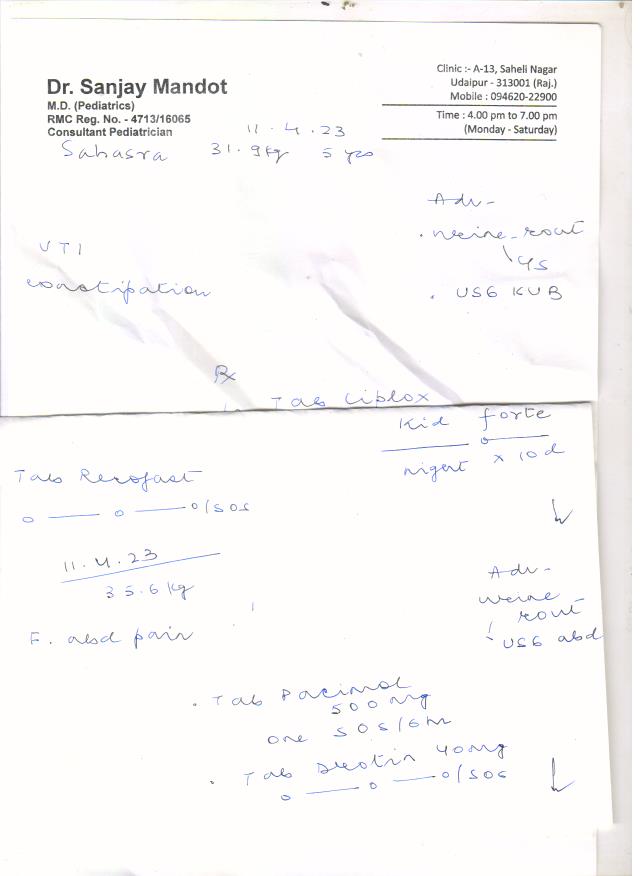 Dr. Sanjay Mandot
M.D. (Pediatrics)
RMC Reg. No. - 4713/16065
Consultant Pediatrician
Clinic :- A-13, Saheli Nagar
Udaipur - 313001 (Raj.)
Mobile : 094620-22900
Time : 4.00 pm to 7.00 pm
(Monday - Saturday)
11.4.23
Sahasra 31.9kg 5 yrs
Adv-
. Urine-rout
. USG KUB
UTI
constipation
Rx
1. Tab Ciblox
Kid forte
x 10d
Tab
o — o — o/SOS
11.4.23
35.6 kg
F. abd pain
Adv-
Urine
rout
USG abd
. Tab Pacimol
500 mg
one SOS/6hr
. Tab 40mg
o — o — o/SOS